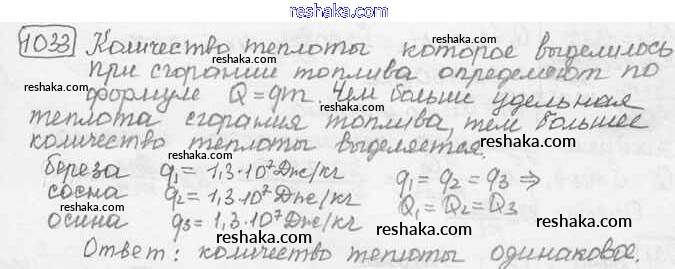 reshaka.ru
1033 Количество теплоты которое выделилось
при сгорании топлива определяют по
формуле Q=qm. Чем больше удельная
теплота сгорания топлива, тем большее
количество теплоты выделяется.
береза q₁=1,3·10⁷Дж/кг
сосна q₂=1,3·10⁷Дж/кг q₁=q₂=q₃⇒
осина q₃=1,3·10⁷Дж/кг Q₁=Q₂=Q₃
Ответ: количество теплоты одинаковое.
reshaka.ru